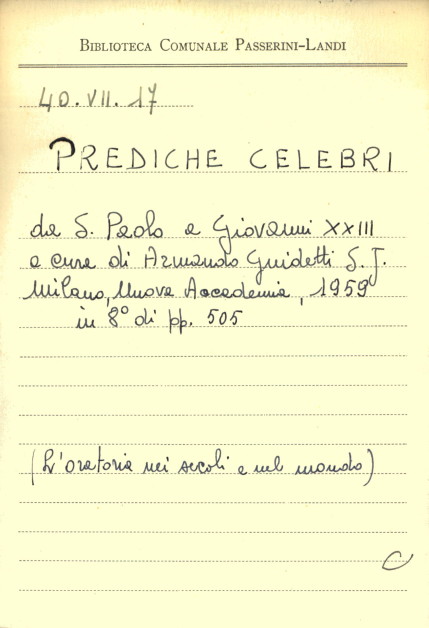 BIBLIOTECA COMUNALE PASSERINI-LANDI
40.VII.17
PREDICHE CELEBRI
da S. Paolo a Giovanni XXIII
a cura di Armando Guidetti S.J.
Milano, Nuova Accademia, 1959
in 8° di pp. 505
(L'oratoria nei secoli e nel mondo)
C